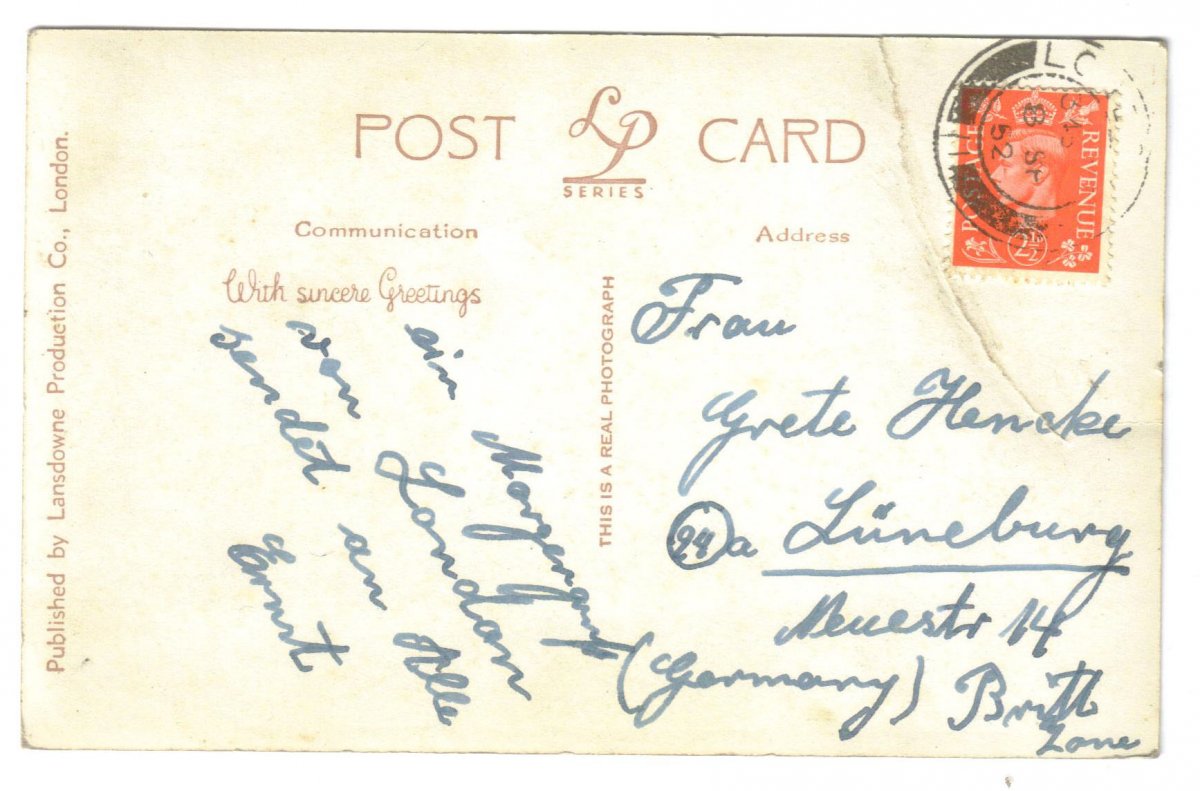 POST LP CARD
SERIES
Communication
Address
With sincere Greetings
ein Morgengruß
von London
sendet an Alle
Ernst
THIS IS A REAL PHOTOGRAPH
Published by Lansdowne Production Co., London.
Frau
Grete Hencke
24 a Lüneburg
Neuestr 14
(Germany) Britt
Zone
POSTAGE REVENUE
2½
LO
8 SP
52